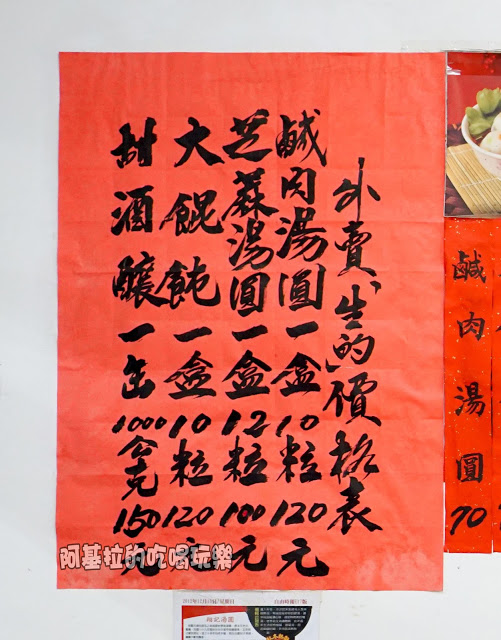 外賣「生的」價格表
鹹肉湯圓一盒10粒120元
芝蔴湯圓一盒12粒100元
大餛飩一盒10粒120元
甜酒釀一缶1000公克150元
鹹肉湯圓70
阿基拉的吃喝玩樂